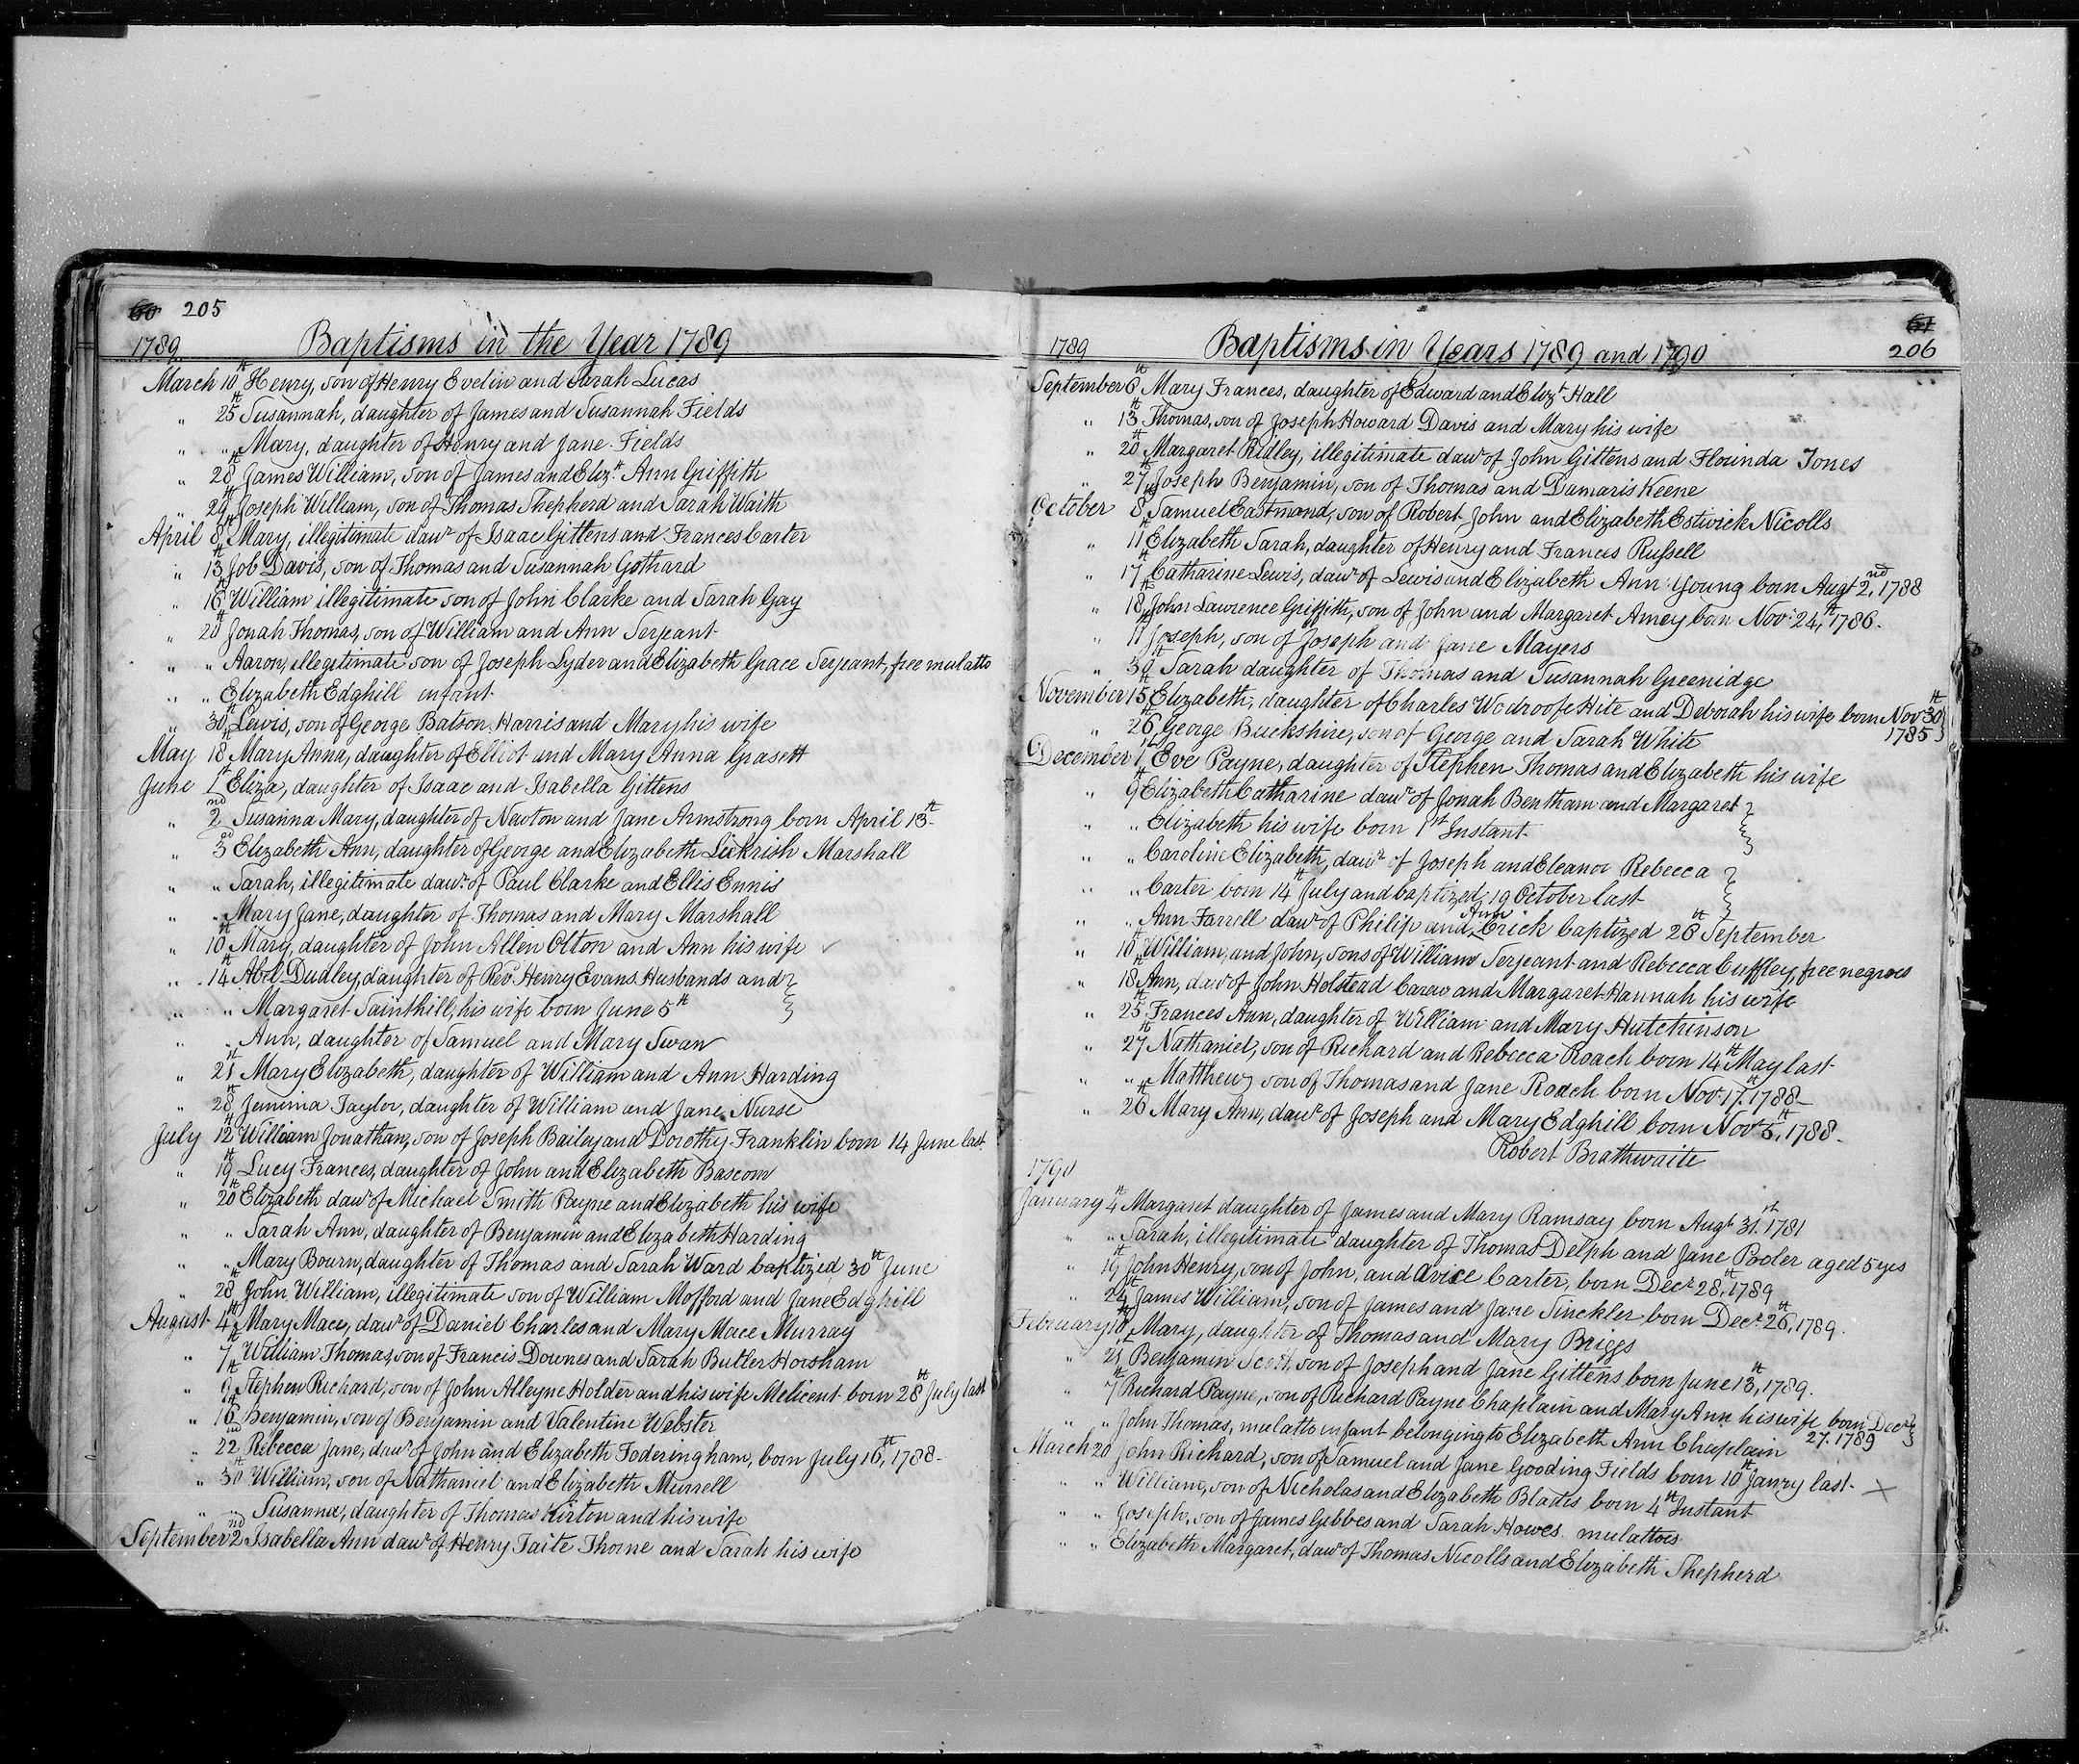 60 205
1789 Baptisms in the Year 1789
March 10th Henry, son of Henry Evelin and Sarah Lucas
" 25th Susannah, daughter of James and Susannah Fields
" " Mary, daughter of Henry and Jane Fields
" 28th James William, son of James and Elizth Ann Griffith
" 29th Joseph William, son of Thomas Shepherd and Sarah Waith
April 8th Mary, illegitimate dawr of Isaac Gittens and Frances Carter
" 13th Job Davis, son of Thomas and Susannah Gothard
" 16th William illegitimate son of John Clarke and Sarah Gay
" 20th Jonah Thomas, son of William and Ann Serjeant
" " Aaron, illegitimate son of Joseph Lyder and Elizabeth Grace Serjeant, free mulatto
" " Elizabeth Edghill infant
" 30th Lewis, son of George Batson Harris and Mary his wife
May 18th Mary Anna, daughter of Elliot and Mary Anna Grasett
June 1st Eliza, daughter of Isaac and Isabella Gittens
" 2nd Susanna Mary, daughter of Newton and Jane Armstrong born April 13th
" 3d Elizabeth Ann, daughter of George and Elizabeth Lickrish Marshall
" " Sarah, illegitimate dawr of Paul Clarke and Ellis Ennis
" " Mary Jane, daughter of Thomas and Mary Marshall
" 10th Mary, daughter of John Allen Olton and Ann his wife ✓
" 14th Abel Dudley, daughter of Revd Henry Evans Husbands and }
" " Margaret Sainthill, his wife born June 5th }
" " Ann, daughter of Samuel and Mary Swan
" 21st Mary Elizabeth, daughter of William and Ann Harding
" 28th Jemima Taylor, daughter of William and Jane Nurse
July 12th William Jonathan, son of Joseph Bailey and Dorothy Franklin born 14 June last
" 19th Lucy Frances, daughter of John and Elizabeth Bascom
" 20th Elizabeth dawr of Michael Smith Payne and Elizabeth his wife
" " Sarah Ann, daughter of Benjamin and Elizabeth Harding
" " Mary Bourn, daughter of Thomas and Sarah Ward baptized 30th June
" 28th John William, illegitimate son of William Mofford and Jane Edghill
August 4th Mary Mace, dawr of Daniel Charles and Mary Mace Murray
" 7th William Thomas, son of Francis Downes and Sarah Butler Horsham
" 9th Stephen Richard, son of John Alleyne Holder and his wife Melicent born 28th July last
" 16th Benjamin, son of Benjamin and Valentine Webster
" 22nd Rebecca Jane, dawr of John and Elizabeth Foderingham, born July 16th, 1788
" 30th William, son of Nathaniel and Elizabeth Murrell
" " Susanna, daughter of Thomas Kirton and his wife
September 2nd Isabella Ann dawr of Henry Taite Thorne and Sarah his wife
61
1789 Baptisms in Years 1789 and 1790 206
September 6th Mary Frances, daughter of Edward and Elizth Hall
" 13th Thomas, son of Joseph Howard Davis and Mary his wife
" 20th Margaret Ridley, illegitimate dawr of John Gittens and Florinda Jones
" 27th Joseph Benjamin, son of Thomas and Damaris Keene
October 8th Samuel Eastmond, son of Robert John and Elizabeth Estwick Nicolls
" 11th Elizabeth Sarah, daughter of Henry and Frances Russell
" 17th Catharine Lewis, dawr of Lewis and Elizabeth Ann Young born Augt 2nd, 1788
" 18th John Lawrence Griffith, son of John and Margaret Amey born Novr 24th, 1786
" " Joseph, son of Joseph and Jane Mayers
" 30th Sarah daughter of Thomas and Susannah Greenidge
November 15th Elizabeth, daughter of Charles Wodroofe Hite and Deborah his wife born Novr 30th }
1785 }
" 26th George Buckshire, son of George and Sarah White
December 1st Eve Payne, daughter of Stephen Thomas and Elizabeth his wife
" 9th Elizabeth Catharine dawr of Jonah Bentham and Margaret }
" " Elizabeth his wife born 1st Instant }
" " Caroline Elizabeth, dawr of Joseph and Eleanor Rebecca }
" " Carter born 14th July and baptized 19 October last }
" " Ann Farrell dawr of Philip and Ann Crick baptized 26th September
" 10th William, and John, sons of William Serjeant and Rebecca Cuffley, free negroes
" 18th Ann, dawr of John Holstead Carew and Margaret Hannah his wife
" 25th Frances Ann, daughter of William and Mary Hutchinson
" 27th Nathaniel, son of Richard and Rebecca Roach born 14th May last
" " Matthew, son of Thomas and Jane Roach born Novr 17th, 1788
" 28th Mary Ann, dawr of Joseph and Mary Edghill born Novr 5th, 1788
Robert Brathwaite
1790
January 4th Margaret daughter of James and Mary Ramsay born Augt 31st 1781
" " Sarah, illegitimate daughter of Thomas Delph and Jane Pooler aged 5 yrs
" 19th John Henry, son of John, and Avice Carter, born Decr 28th, 1789
" 24th James William, son of James and Jane Tinckler born Decr 26th, 1789
February Mary, daughter of Thomas and Mary Briggs
" 21st Benjamin Scott, son of Joseph and Jane Gittens born June 13th, 1789
" 7th Richard Payne, son of Richard Payne Chaplain and Mary Ann his wife born Decr }
27. 1789 }
" " John Thomas, mulatto infant belonging to Elizabeth Ann Chaplain
March 20 John Richard, son of Samuel and Jane Gooding Fields born 10th Janry last
" " William, son of Nicholas and Elizabeth Blades born 4th Instant X
" " Joseph, son of James Gibbes and Sarah Howes mulattoes
" " Elizabeth Margaret, dawr of Thomas Nicolls and Elizabeth Shepherd